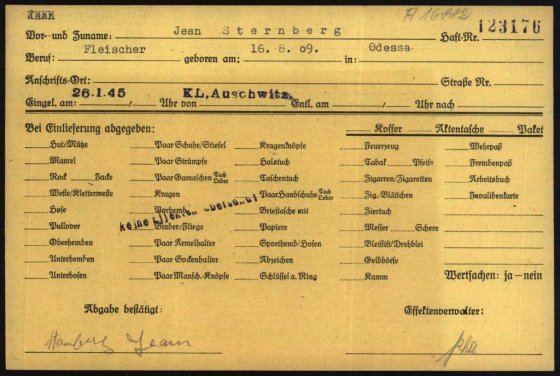 Jean Sternberg A 16882
Vor- und Zuname: Haft-Nr. 123176
Fleischer 16. 8. 09. Odessa
Beruf: geboren am: in:
Anschrifts-Ort: Straße Nr.
26.1.45 KL. Auschwitz
Eingel. am: Uhr von Entl. am: Uhr nach
Bei Einlieferung abgegeben: Koffer Aktentasche Paket
Hut/Mütze Paar Schuhe/Stiefel Kragenknöpfe Feuerzeug Wehrpaß
Mantel Paar Strümpfe Halstuch Tabak Pfeife Fremdenpaß
Rock Jacke Paar Gamaschen Tuch Leder Taschentuch Zigarren/Zigaretten Arbeitsbuch
Weste/Kletterweste Kragen Paar Handschuhe Tuch Leder Zig.-Blättchen Invalidenkarte
Hose Vorhemd Brieftasche mit Ziertuch
keine Effekten überstellt
Pullover Binder/Fliege Papiere Messer Schere
Oberhemden Paar Ärmelhalter Sporthemd/Hosen Bleistift/Drehblei
Unterhemden Paar Sockenhalter Abzeichen Geldbörse
Unterhosen Paar Mansch.-Knöpfe Schlüssel a. Ring Kamm Wertsachen: ja—nein
Abgabe bestätigt: Effektenverwalter:
Jean